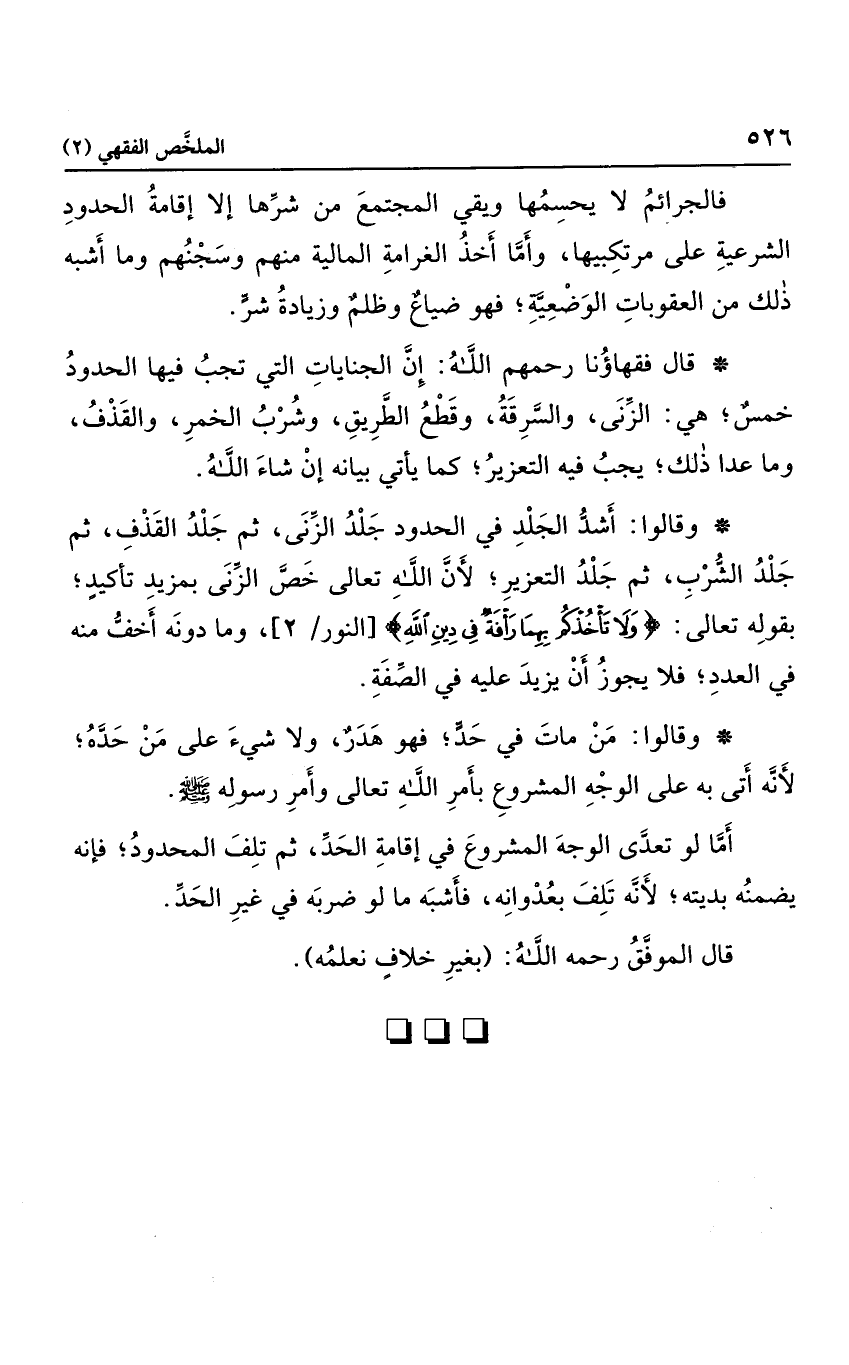 ٥٢٦
الملخَّص الفقهي (٢)
فالجرائمُ لا يحسِمُها ويقي المجتمعَ من شرِّها إلا إقامةُ الحدودِ
الشرعيةِ على مرتكِبيها، وأَمَّا أَخذُ الغرامةِ المالية منهم وسَجْنُهم وما أشبه
ذٰلك من العقوباتِ الوَضْعِيَّةِ؛ فهو ضياعٌ وظلمٌ وزيادةُ شرٍّ.
* قال فقهاؤُنا رحمهم اللَّـهُ: إِنَّ الجناياتِ التي تجبُ فيها الحدودُ
خمسٌ؛ هي: الزِّنَى، والسَّرِقَةُ، وقَطْعُ الطَّرِيقِ، وشُرْبُ الخمرِ، والقَذْفُ،
وما عدا ذٰلك؛ يجبُ فيه التعزيرُ؛ كما يأتي بيانه إنْ شاءَ اللَّـهُ.
* وقالوا: أَشدُّ الجَلْدِ في الحدود جَلْدُ الزِّنَى، ثم جَلْدُ القَذْفِ، ثم
جَلْدُ الشُّرْبِ، ثم جَلْدُ التعزيرِ؛ لأَنَّ اللَّـهِ تعالى خَصَّ الزِّنَى بمزيدِ تأكيدٍ؛
بقولِه تعالى: ﴿وَلَا تَأْخُذْكُم بِهِمَا رَأْفَةٌ فِي دِينِ ٱللَّهِ﴾ [النور/ ٢]، وما دونَه أَخفُّ منه
في العددِ؛ فلا يجوزُ أَنْ يزيدَ عليه في الصِّفَةِ.
* وقالوا: مَنْ ماتَ في حَدٍّ؛ فهو هَدَرٌ، ولا شيءَ على مَنْ حَدَّهُ؛
لأَنَّه أَتى به على الوجْهِ المشروعِ بأَمرِ اللَّـهِ تعالى وأَمرِ رسولِه ﷺ.
أَمَّا لو تعدَّى الوجهَ المشروعَ في إقامةِ الحَدِّ، ثم تلِفَ المحدودُ؛ فإنه
يضمنُه بديته؛ لأَنَّه تَلِفَ بعُدْوانِه، فأَشبَه ما لو ضربَه في غيرِ الحَدِّ.
قال الموفَّقُ رحمه اللَّـهُ: (بغيرِ خلافٍ نعلمُه).